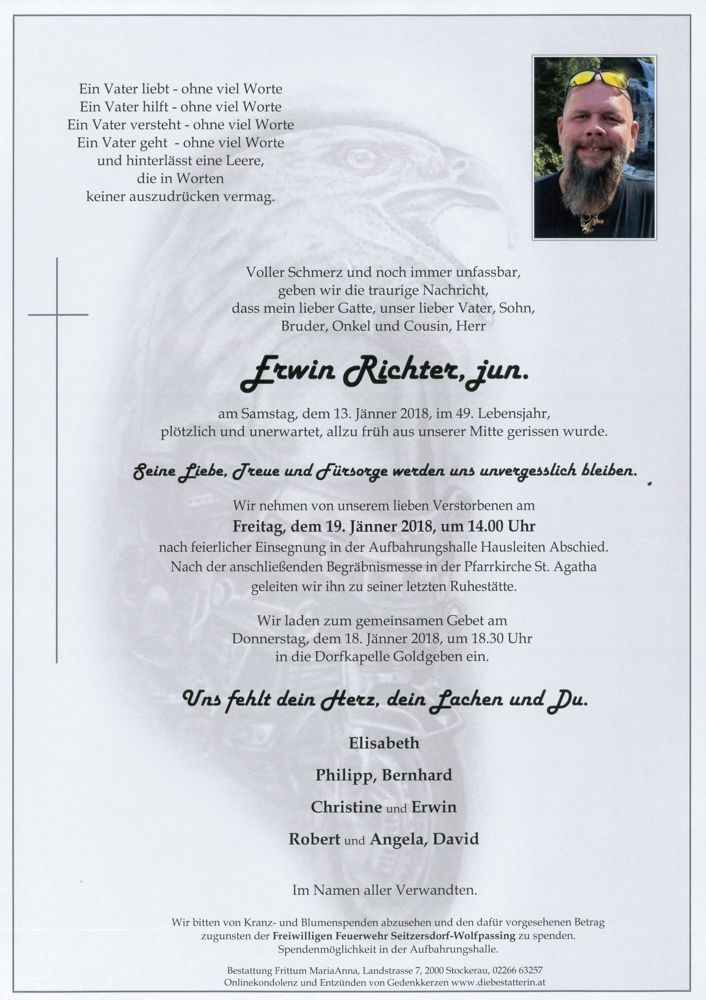 Ein Vater liebt - ohne viel Worte
Ein Vater hilft - ohne viel Worte
Ein Vater versteht - ohne viel Worte
Ein Vater geht - ohne viel Worte
und hinterlässt eine Leere,
die in Worten
keiner auszudrücken vermag.
Voller Schmerz und noch immer unfassbar,
geben wir die traurige Nachricht,
dass mein lieber Gatte, unser lieber Vater, Sohn,
Bruder, Onkel und Cousin, Herr
Erwin Richter, jun.
am Samstag, dem 13. Jänner 2018, im 49. Lebensjahr,
plötzlich und unerwartet, allzu früh aus unserer Mitte gerissen wurde.
Seine Liebe, Treue und Fürsorge werden uns unvergesslich bleiben.
Wir nehmen von unserem lieben Verstorbenen am
Freitag, dem 19. Jänner 2018, um 14.00 Uhr
nach feierlicher Einsegnung in der Aufbahrungshalle Hausleiten Abschied.
Nach der anschließenden Begräbnismesse in der Pfarrkirche St. Agatha
geleiten wir ihn zu seiner letzten Ruhestätte.
Wir laden zum gemeinsamen Gebet am
Donnerstag, dem 18. Jänner 2018, um 18.30 Uhr
in die Dorfkapelle Goldgeben ein.
Uns fehlt dein Herz, dein Lachen und Du.
Elisabeth
Philipp, Bernhard
Christine und Erwin
Robert und Angela, David
Im Namen aller Verwandten.
Wir bitten von Kranz- und Blumenspenden abzusehen und den dafür vorgesehenen Betrag
zugunsten der Freiwilligen Feuerwehr Seitzersdorf-Wolfpassing zu spenden.
Spendenmöglichkeit in der Aufbahrungshalle.
Bestattung Frittum MariaAnna, Landstrasse 7, 2000 Stockerau, 02266 63257
Onlinekondolenz und Entzünden von Gedenkkerzen www.diebestatterin.at